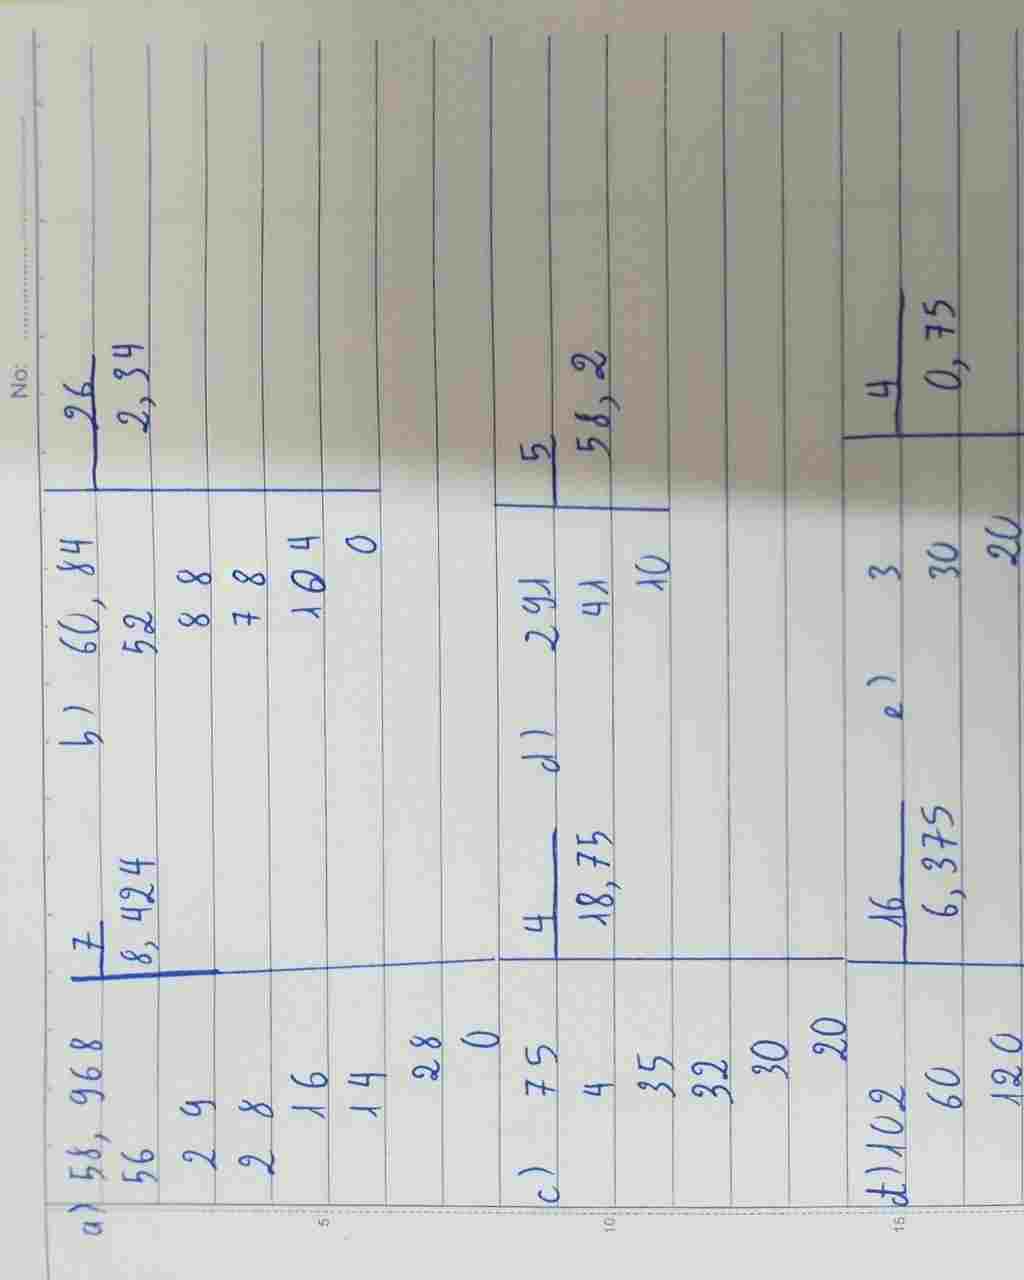 No:
a) 58,968 7 b) 60,84 26
56 8,424 52 2,34
2 9 8 8
2 8 7 8
5 16 104
14 0
28
0
c) 75 4 d) 291 5
10 4 18,75 41 58,2
35 10
32
30
20
15 d) 102 16 e) 3 4
60 6,375 30 0,75
120 20